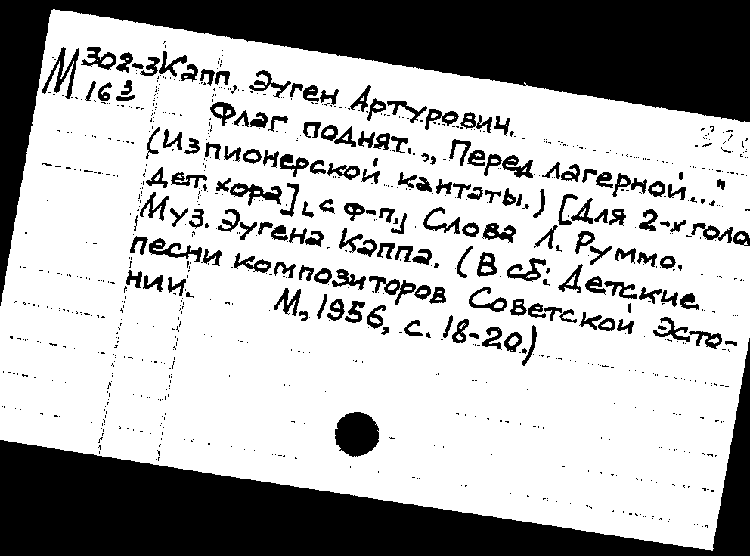 М 302-3 Капп, Эуген Артурович.
16 3
Флаг поднят. „Перед лагерной..."
(Из пионерской кантаты.) [Для 2-х голо
дет. хора] [с ф-п.] Слова Л. Руммо.
Муз. Эугена Каппа. (В сб: Детские
песни композиторов Советской Эсто-
нии. М, 1956, с. 18-20.)